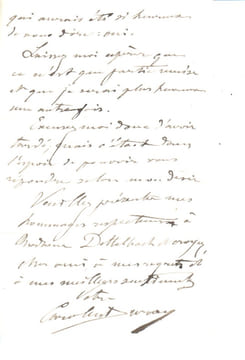 qui aurais été si heureux
de vous dire : oui.
Laissez moi espérer que
ce n'est que partie remise
et que je serai plus heureux
une autre fois.
Excusez moi donc d'avoir
tardé, mais c'était dans
l'espoir de pouvoir vous
répondre selon mon désir
Veuillez présenter mes
hommages respectueux à
Madame
cher ami à mes regrets et
à mes meilleurs sentiments
Votre